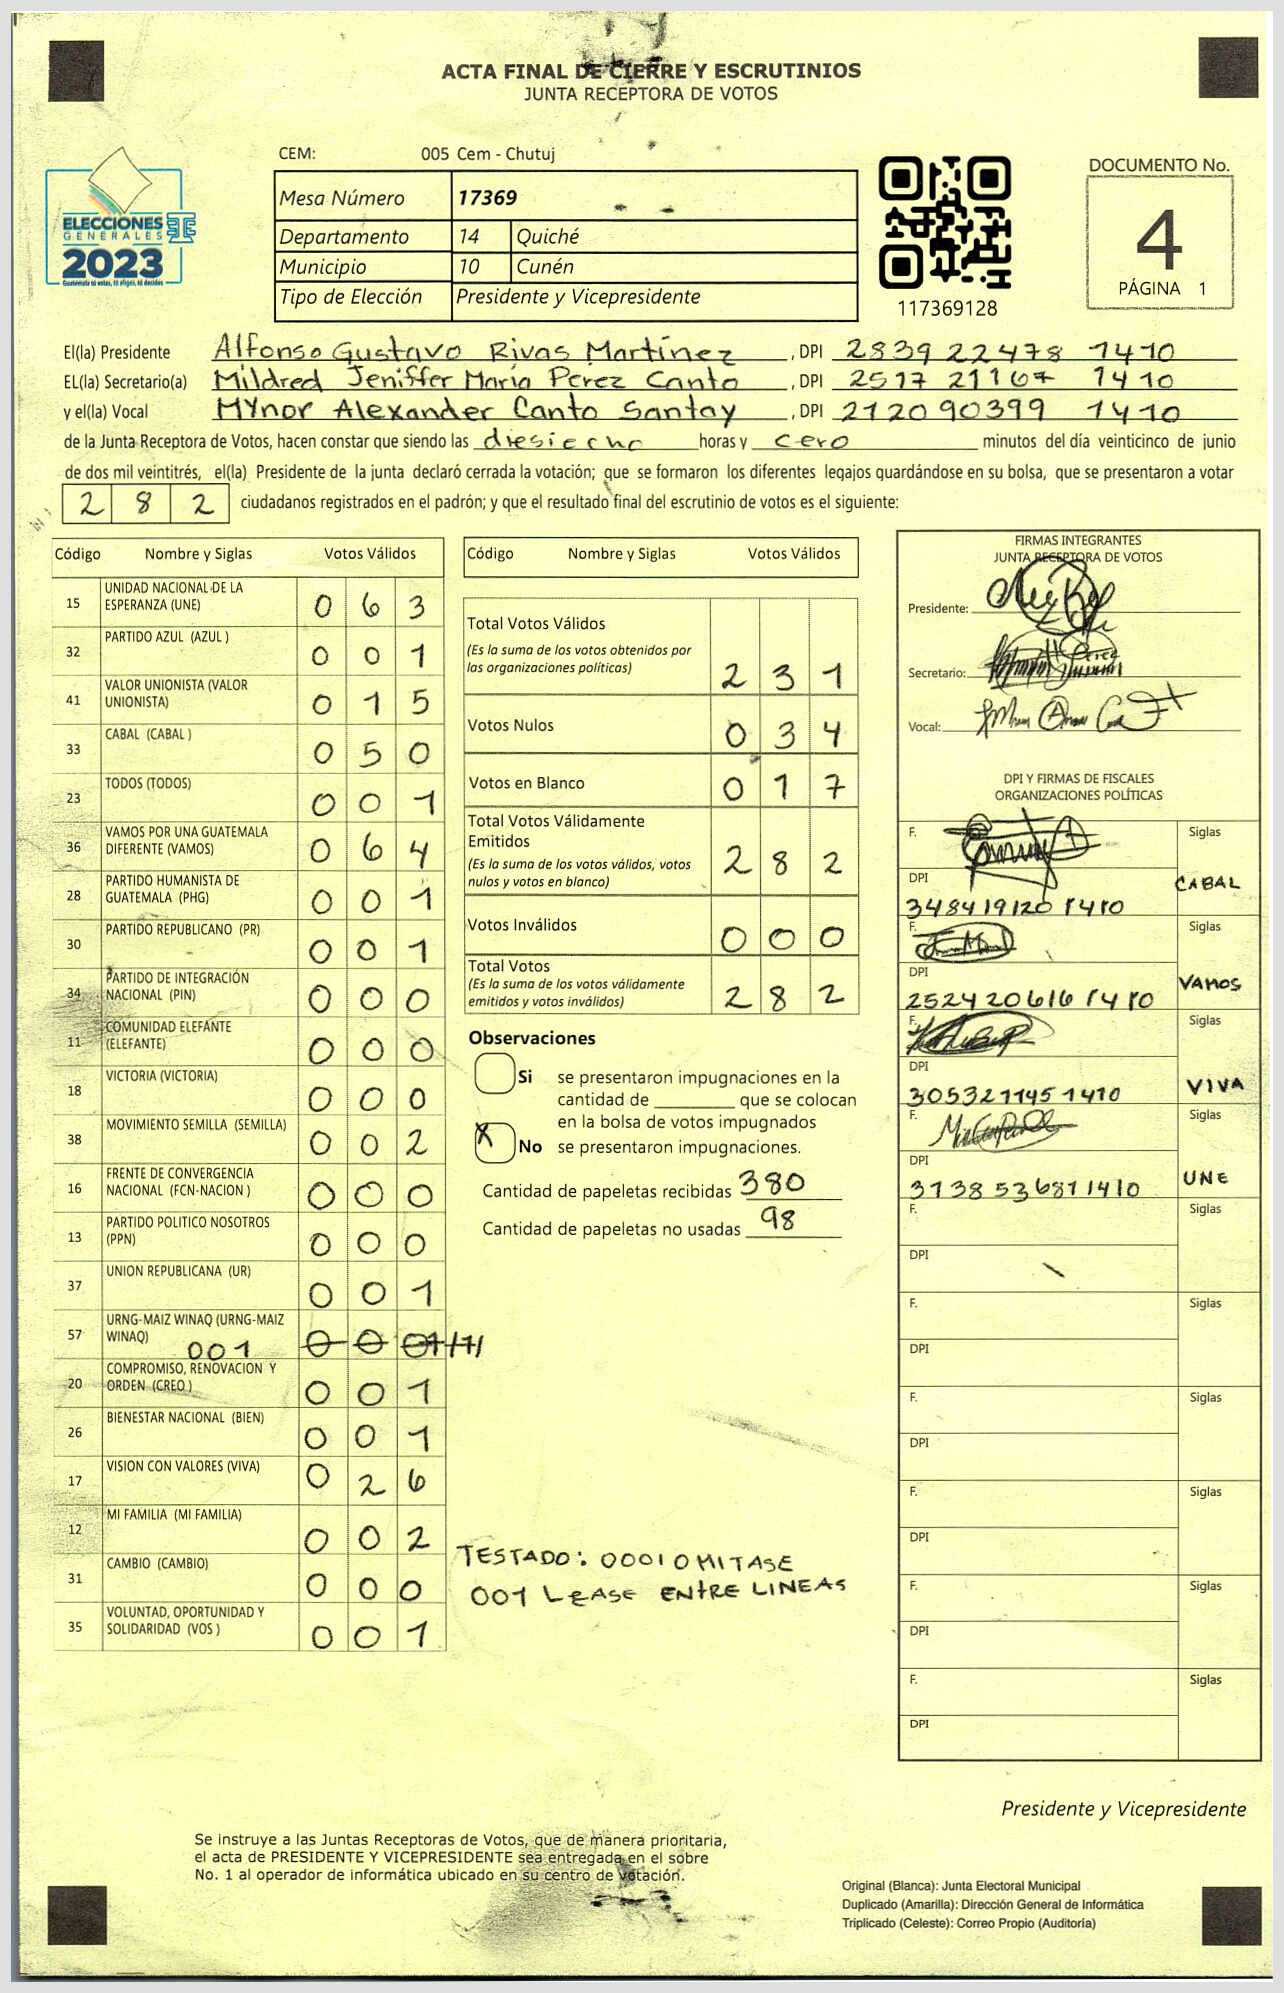 ACTA FINAL DE CIERRE Y ESCRUTINIOS
JUNTA RECEPTORA DE VOTOS
CEM: 005 Cem - Chutuj
Mesa Número 17369
Departamento 14 Quiché
Municipio 10 Cunén
Tipo de Elección Presidente y Vicepresidente
ELECCIONES
GENERALES
2023
Guatemala tú votas, tú eliges, tú decides
117369128
DOCUMENTO No.
4
PÁGINA 1
El(la) Presidente Alfonso Gustavo Rivas Martínez, DPI 2839 22478 1410
EL(la) Secretario(a) Mildred Jeniffer María Pérez Canto, DPI 2517 21167 1410
y el(la) Vocal MYnor Alexander Canto Santay, DPI 2120 90399 1410
de la Junta Receptora de Votos, hacen constar que siendo las diesiecho horas y cero minutos del día veinticinco de junio
de dos mil veintitrés, el(la) Presidente de la junta declaró cerrada la votación; que se formaron los diferentes legajos guardándose en su bolsa, que se presentaron a votar
2 8 2 ciudadanos registrados en el padrón; y que el resultado final del escrutinio de votos es el siguiente:
Código Nombre y Siglas Votos Válidos
15 UNIDAD NACIONAL DE LA ESPERANZA (UNE) 0 6 3
32 PARTIDO AZUL (AZUL ) 0 0 1
41 VALOR UNIONISTA (VALOR UNIONISTA) 0 1 5
33 CABAL (CABAL ) 0 5 0
23 TODOS (TODOS) 0 0 1
36 VAMOS POR UNA GUATEMALA DIFERENTE (VAMOS) 0 6 4
28 PARTIDO HUMANISTA DE GUATEMALA (PHG) 0 0 1
30 PARTIDO REPUBLICANO (PR) 0 0 1
34 PARTIDO DE INTEGRACIÓN NACIONAL (PIN) 0 0 0
11 COMUNIDAD ELEFANTE (ELEFANTE) 0 0 0
18 VICTORIA (VICTORIA) 0 0 0
38 MOVIMIENTO SEMILLA (SEMILLA) 0 0 2
16 FRENTE DE CONVERGENCIA NACIONAL (FCN-NACION ) 0 0 0
13 PARTIDO POLITICO NOSOTROS (PPN) 0 0 0
37 UNION REPUBLICANA (UR) 0 0 1
57 URNG-MAIZ WINAQ (URNG-MAIZ WINAQ) 001 0 0 01
20 COMPROMISO, RENOVACION Y ORDEN (CREO ) 0 0 1
26 BIENESTAR NACIONAL (BIEN) 0 0 1
17 VISION CON VALORES (VIVA) 0 2 6
12 MI FAMILIA (MI FAMILIA) 0 0 2
31 CAMBIO (CAMBIO) 0 0 0
35 VOLUNTAD, OPORTUNIDAD Y SOLIDARIDAD (VOS ) 0 0 1
Código Nombre y Siglas Votos Válidos
Total Votos Válidos
(Es la suma de los votos obtenidos por
las organizaciones políticas) 2 3 1
Votos Nulos 0 3 4
Votos en Blanco 0 1 7
Total Votos Válidamente
Emitidos
(Es la suma de los votos válidos, votos
nulos y votos en blanco) 2 8 2
Votos Inválidos 0 0 0
Total Votos
(Es la suma de los votos válidamente
emitidos y votos inválidos) 2 8 2
Observaciones
Si se presentaron impugnaciones en la
cantidad de ________ que se colocan
en la bolsa de votos impugnados
X No se presentaron impugnaciones.
Cantidad de papeletas recibidas 380
Cantidad de papeletas no usadas 98
TESTADO: 0001 OMITASE
001 LEASE ENTRE LINEAS
FIRMAS INTEGRANTES
JUNTA RECEPTORA DE VOTOS
Presidente:
Secretario:
Vocal:
DPI Y FIRMAS DE FISCALES
ORGANIZACIONES POLÍTICAS
F. Siglas
DPI CABAL
348419120 1410
F. Siglas
DPI VAMOS
252420616 1410
F. Siglas
DPI VIVA
305321145 1410
F. Siglas
DPI UNE
3138 53681 1410
F. Siglas
DPI
F. Siglas
DPI
F. Siglas
DPI
F. Siglas
DPI
F. Siglas
DPI
F. Siglas
DPI
Presidente y Vicepresidente
Se instruye a las Juntas Receptoras de Votos, que de manera prioritaria,
el acta de PRESIDENTE Y VICEPRESIDENTE sea entregada en el sobre
No. 1 al operador de informática ubicado en su centro de votación.
Original (Blanca): Junta Electoral Municipal
Duplicado (Amarilla): Dirección General de Informática
Triplicado (Celeste): Correo Propio (Auditoría)